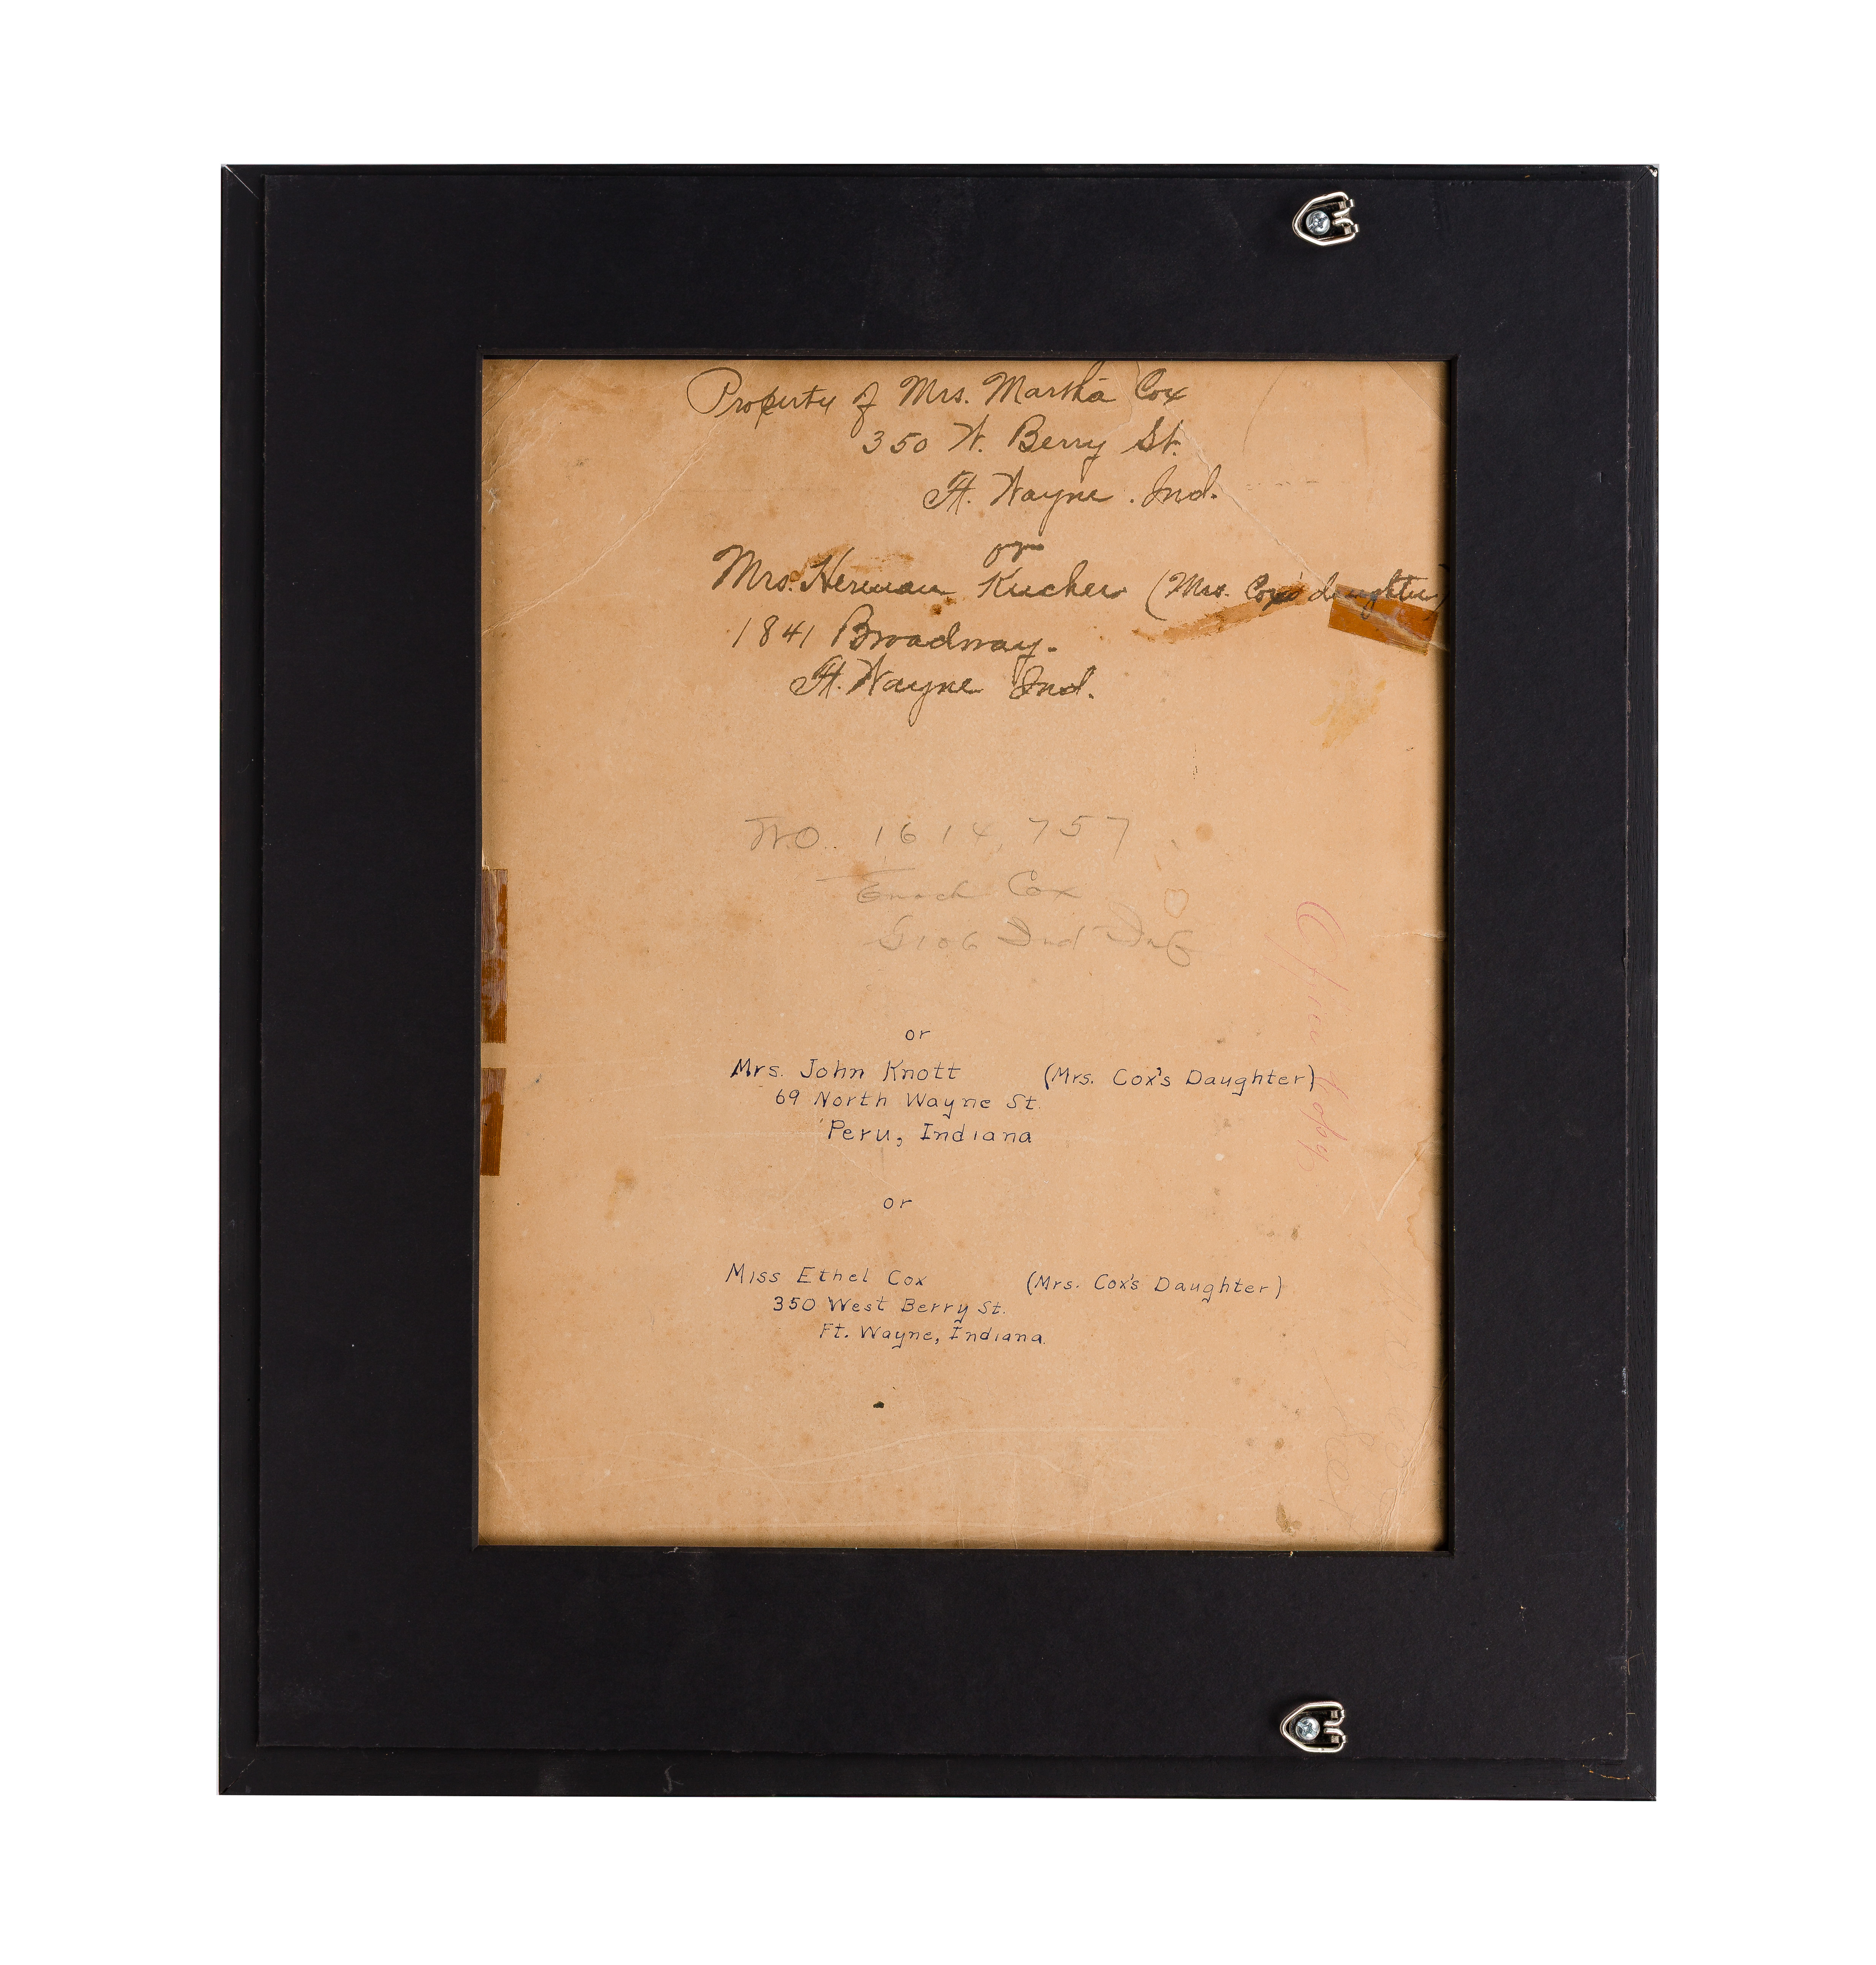 Property of Mrs. Martha Cox
350 W. Berry St.
Ft. Wayne. Ind.
or
Mrs. Herman (Mrs. Cox's daughter)
1841 Broadway.
Ft. Wayne Ind.
W.O. 1614,757
Enoch Cox
Ind Inf
or
Mrs. John Knott (Mrs. Cox's Daughter)
69 North Wayne St.
Peru, Indiana
or
Miss Ethel Cox (Mrs. Cox's Daughter)
350 West Berry St.
Ft. Wayne, Indiana.